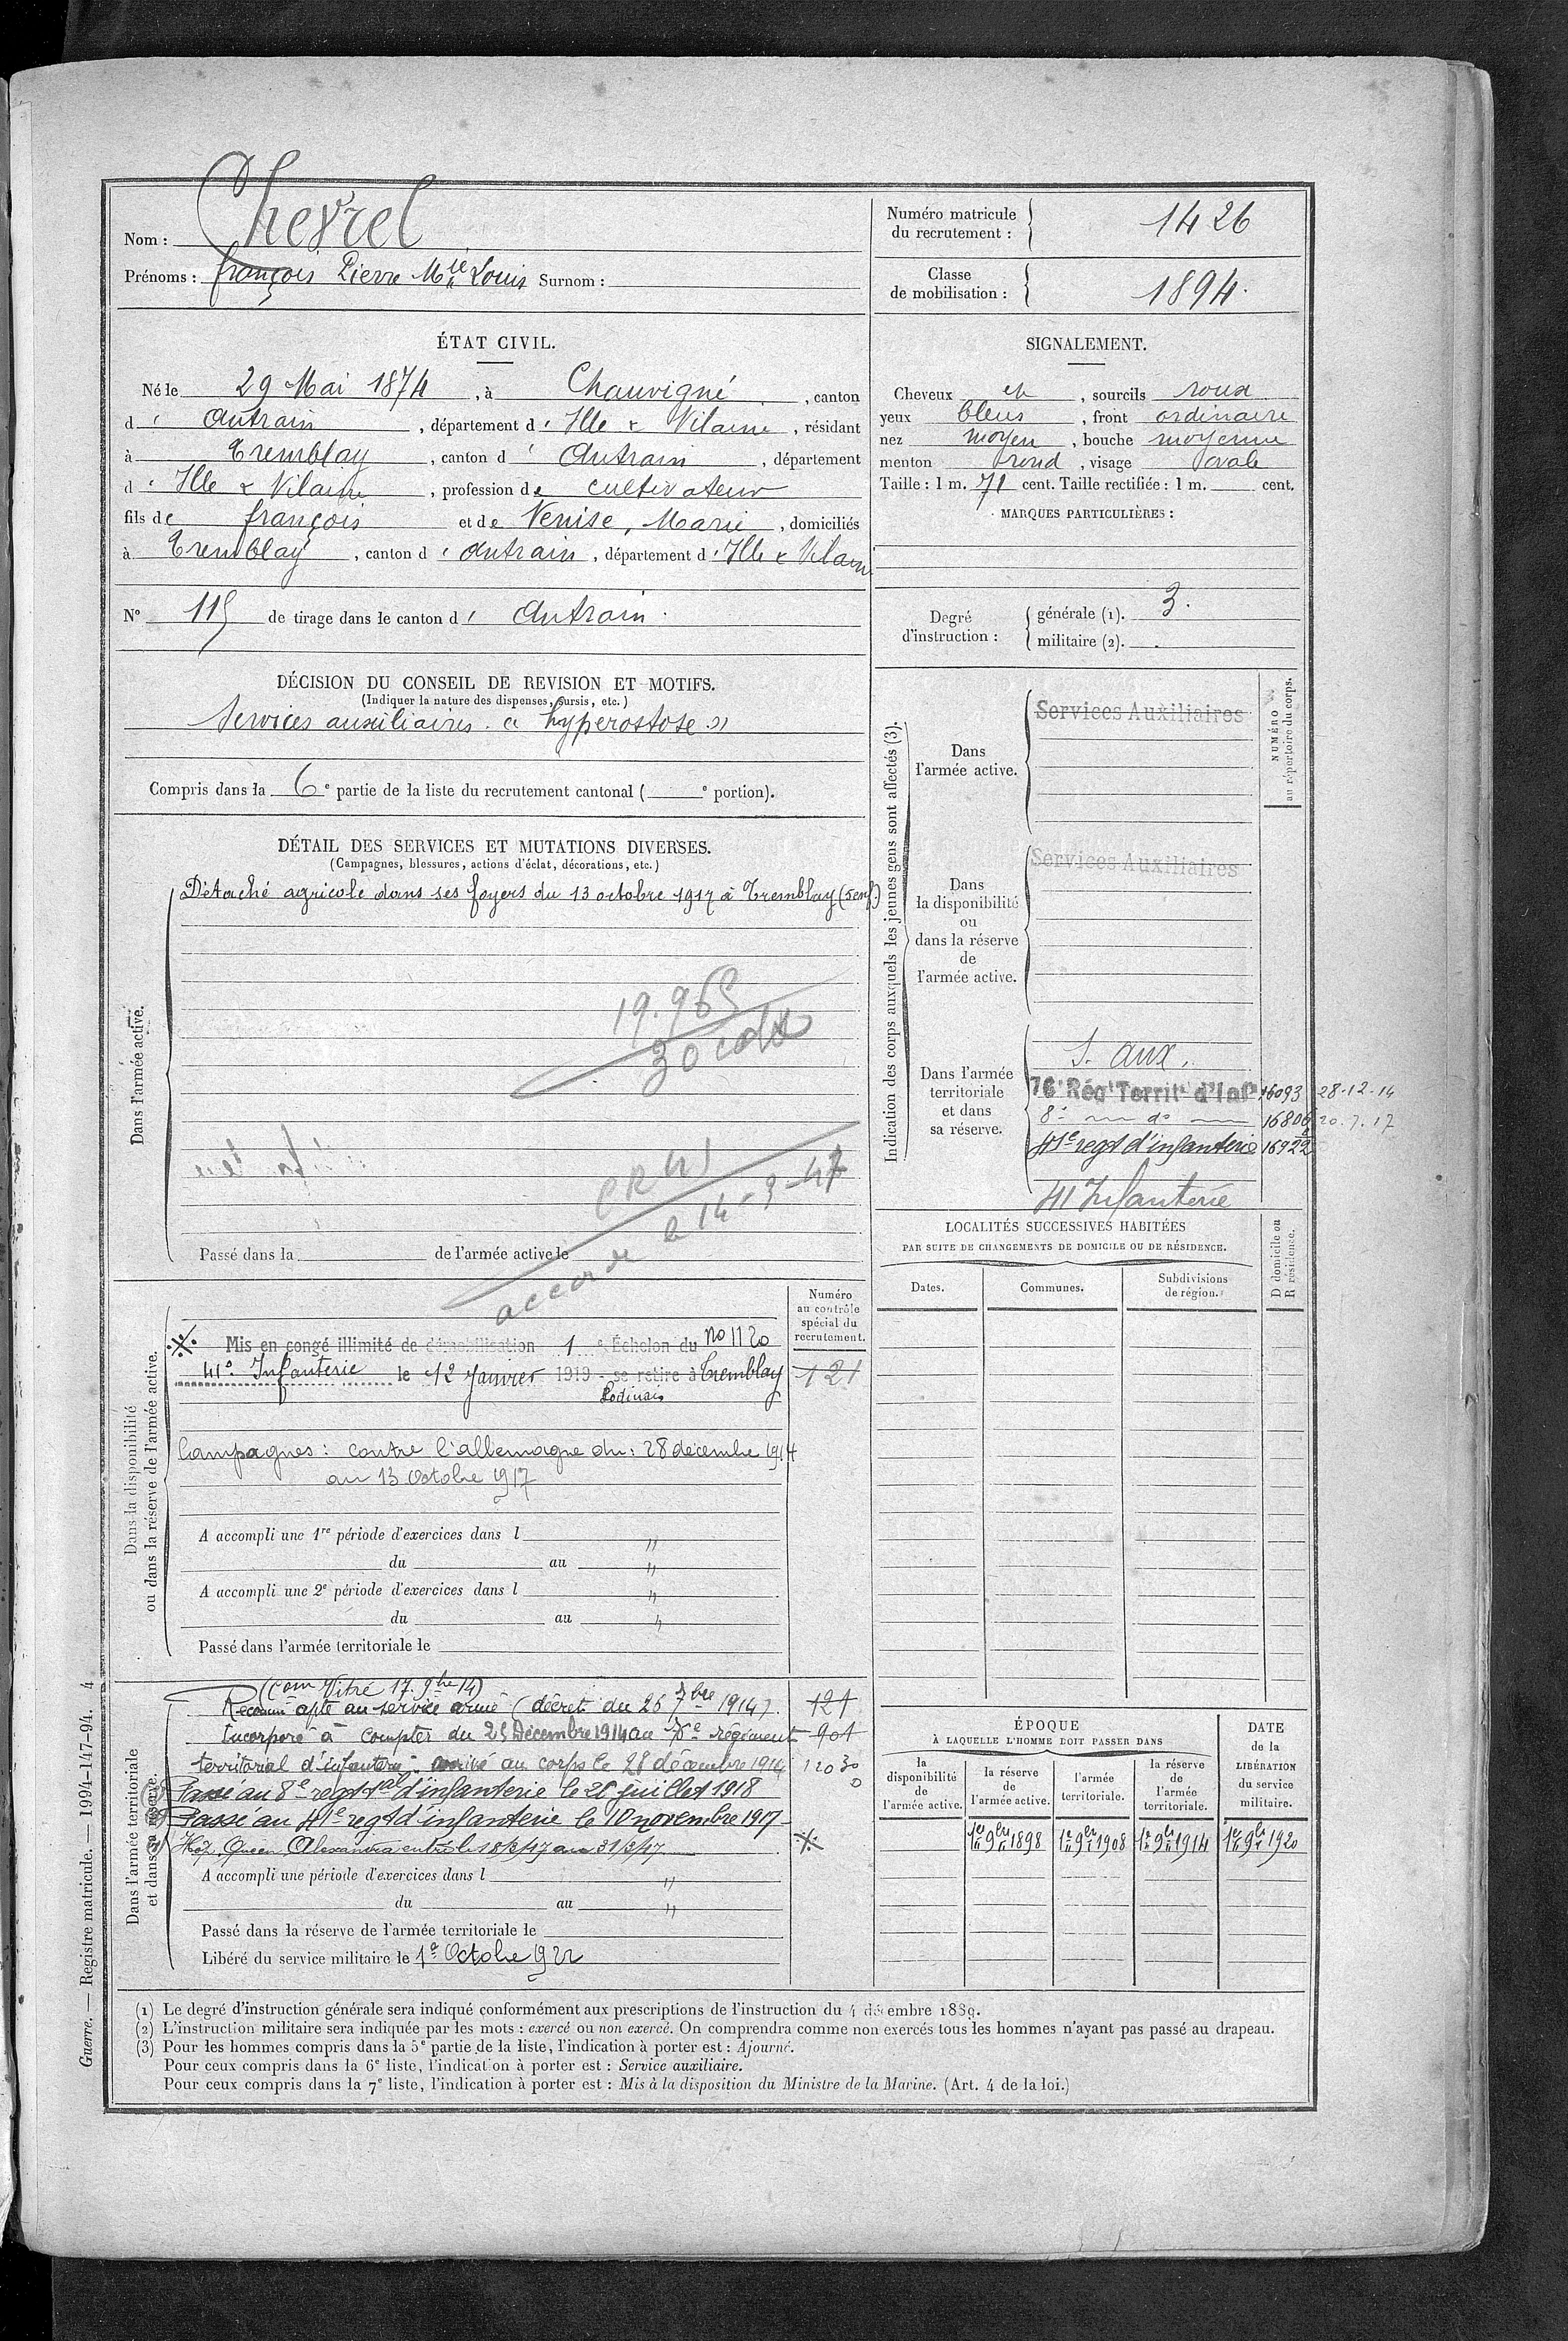 Nom : Chevrel
Prénoms : françois Pierre Mie Louis Surnom :
Numéro matricule du recrutement : 1426
Classe de mobilisation : 1894.
ÉTAT CIVIL.
Né le 29 Mai 1874, à Chauvigné, canton
d' Antrain, département d' Ille & Vilaine, résidant
à Tremblay, canton d' Antrain, département
d' Ille & Vilaine, profession de cultivateur
fils de françois et de Venise, Marie, domiciliés
à Tremblay, canton d' Antrain, département d' Ille & Vilaine
N° 115 de tirage dans le canton d' Antrain.
SIGNALEMENT.
Cheveux et, sourcils roux
yeux bleus, front ordinaire
nez moyen, bouche moyenne
menton rond, visage ovale
Taille : 1 m. 71 cent. Taille rectifiée : 1 m. cent.
MARQUES PARTICULIÈRES :
Degré d'instruction : générale (1). 3.
militaire (2).
DÉCISION DU CONSEIL DE REVISION ET MOTIFS.
(Indiquer la nature des dispenses, sursis, etc.)
Services auxiliaires. « hyperostose »
Compris dans la 6e partie de la liste du recrutement cantonal ( e portion).
DÉTAIL DES SERVICES ET MUTATIONS DIVERSES.
(Campagnes, blessures, actions d'éclat, décorations, etc.)
Dans l'armée active.
Détaché agricole dans ses foyers du 13 octobre 1917 à Tremblay (5 enf.)
19.965
accordé le 14-3-47
Passé dans la de l'armée active le
Indication des corps auxquels les jeunes gens sont affectés (3).
NUMÉRO au répertoire du corps.
Dans l'armée active.
Services Auxiliaires
Dans la disponibilité ou dans la réserve de l'armée active.
Services Auxiliaires
Dans l'armée territoriale et dans sa réserve.
S. aux.
76e Régt Territl d'Infie 16093 28-12-14
8e do 16806 20.7.17
41e regt d'infanterie 16922
41 Infanterie
LOCALITÉS SUCCESSIVES HABITÉES
PAR SUITE DE CHANGEMENTS DE DOMICILE OU DE RÉSIDENCE.
Dates. Communes. Subdivisions de région.
D domicile ou R résidence.
Dans la disponibilité ou dans la réserve de l'armée active.
Numéro au contrôle spécial du recrutement.
121
Mis en congé illimité de démobilisation 1 e Échelon du no 1120
41e Infanterie le 12 Janvier 1919 - se retire à Tremblay
Campagnes : contre l'allemagne du : 28 décembre 1914
au 13 Octobre 1917
A accompli une 1re période d'exercices dans l "
du au "
A accompli une 2e période d'exercices dans l "
du au "
Passé dans l'armée territoriale le
Dans l'armée territoriale et dans sa réserve.
(Com Vitré 17. 9bre 14)
Reconnu apte au service armé (décret du 26 7bre 1914). 121
Incorporé à compter du 25 Décembre 1914 au 76e régiment 901
territorial d'infanterie, arrivé au corps le 28 décembre 1914
Passé au 8e regt tal d'infanterie le 20 juillet 1918
Passé au 41e regt d'infanterie le 10 novembre 1917
Hop. Queen Alexandra entré le 18/3/17 au 31/3/17
A accompli une période d'exercices dans l "
du au "
Passé dans la réserve de l'armée territoriale le
Libéré du service militaire le 1er Octobre 1922
ÉPOQUE
À LAQUELLE L'HOMME DOIT PASSER DANS
la disponibilité de l'armée active.
la réserve de l'armée active.
l'armée territoriale.
la réserve de l'armée territoriale.
DATE de la LIBÉRATION du service militaire.
1er 9bre 1898 1er 9bre 1908 1er 9bre 1914 1er 9bre 1920
(1) Le degré d'instruction générale sera indiqué conformément aux prescriptions de l'instruction du 4 décembre 1889.
(2) L'instruction militaire sera indiquée par les mots : exercé ou non exercé. On comprendra comme non exercés tous les hommes n'ayant pas passé au drapeau.
(3) Pour les hommes compris dans la 5e partie de la liste, l'indication à porter est : Ajourné.
Pour ceux compris dans la 6e liste, l'indication à porter est : Service auxiliaire.
Pour ceux compris dans la 7e liste, l'indication à porter est : Mis à la disposition du Ministre de la Marine. (Art. 4 de la loi.)
Guerre. — Registre matricule. — 1994-147-94. 4